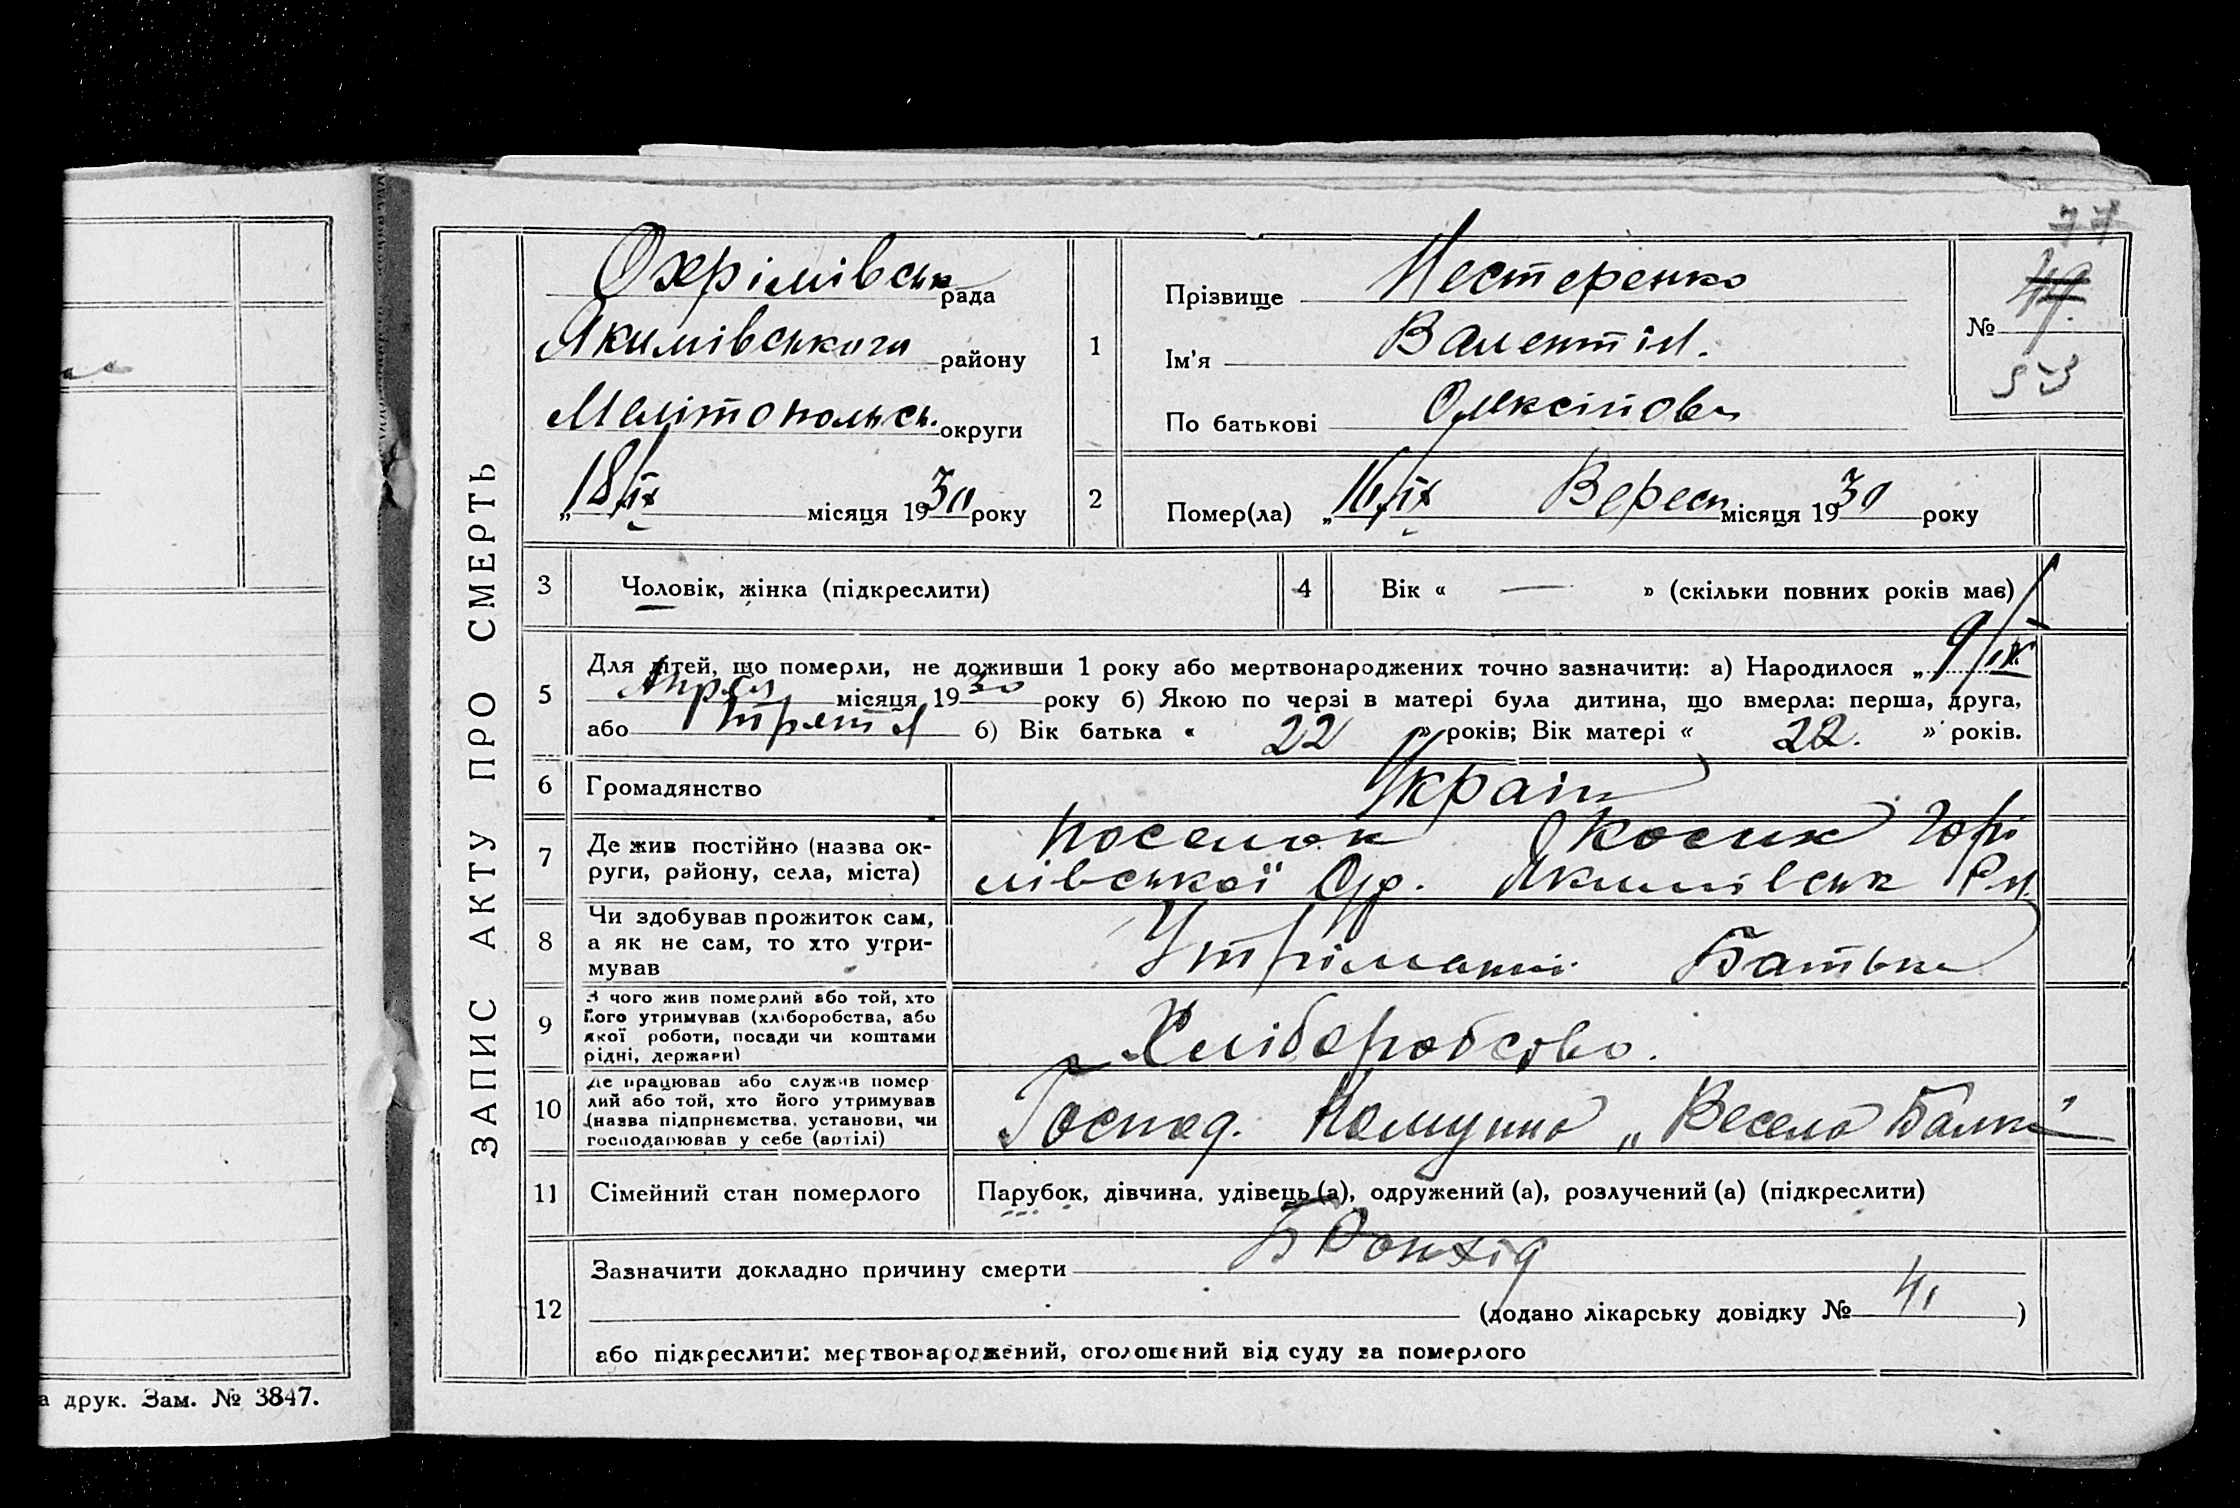 ЗАПИС АКТУ ПРО СМЕРТЬ
Охрімівськ рада
Якимівського району
Мелітопольськ. округи
„18/ІХ місяця 1930 року
1
Прізвище Нестеренко
Ім'я Валентін.
По батькові Олексійов
77
№ 47.
53
2
Помер(ла) „16/ІХ Вересн місяця 1930 року
3
Чоловік, жінка (підкреслити)
4
Вік « — » (скільки повних років має)
5
Для дітей, що померли, не доживши 1 року або мертвонароджених точно зазначити: а) Народилося „9/ІХ
Апрел місяця 1930 року б) Якою по черзі в матері була дитина, що вмерла: перша, друга,
або третя б) Вік батька « 22 » років; Вік матері « 22. » років.
6
Громадянство
Україн
7
Де жив постійно (назва ок-
руги, району, села, міста)
поселок
лівської Якимівськ Р-н
8
Чи здобував прожиток сам,
а як не сам, то хто утри-
мував
Утріманні Батька
9
З чого жив померлий або той, хто
його утримував (хліборобства, або
якої роботи, посади чи коштами
рідні, держави)
Хліборобство.
10
Де працював або служив помер
лий або той, хто його утримував
(назва підприємства, установи, чи
господарював у себе (артілі)
Господ. Комуина „Весело Балка"
11
Сімейний стан померлого
Парубок, дівчина, удівець (а), одружений (а), розлучений (а) (підкреслити)
12
Зазначити докладно причину смерти Бронхід
(додано лікарську довідку № 41)
або підкреслити: мертвонароджений, оголошений від суду за померлого
а друк. Зам. № 3847.